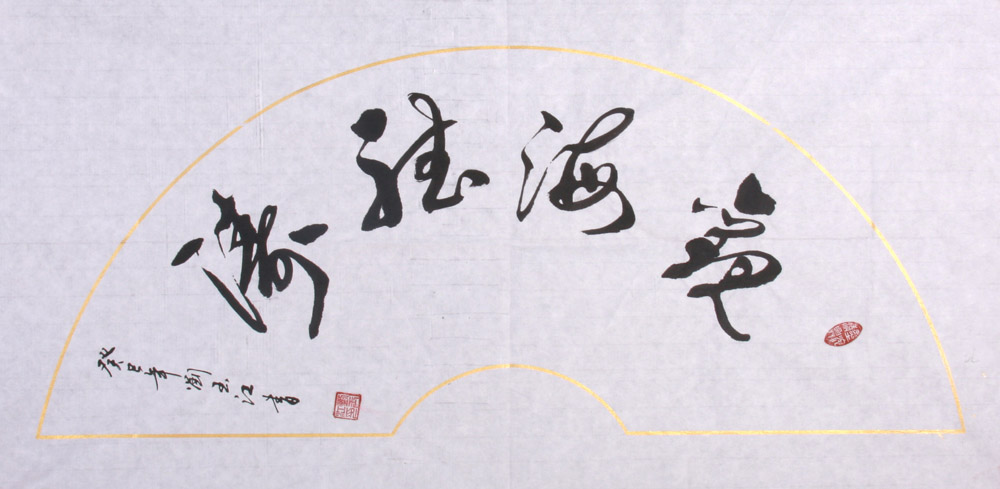 海聽濤
癸巳年劉玉江書